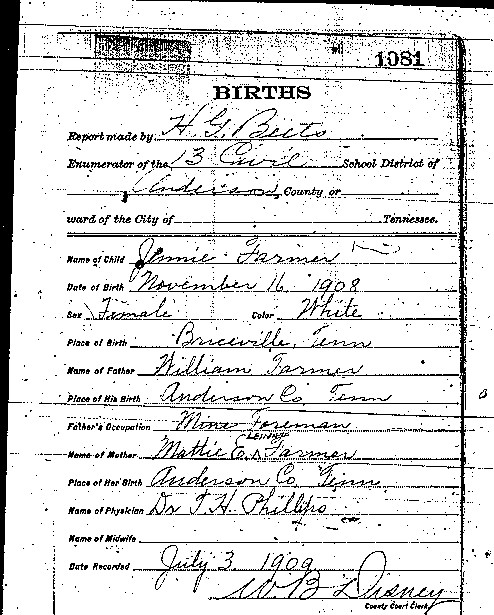 1081
BIRTHS
Report made by H. G. Beets
Enumerator of the 13 Civil School District of
Anderson, County or
ward of the City of Tennessee.
Name of Child Jennie Farmer
Date of Birth November 16 1908
Sex Female Color White
Place of Birth Briceville, Tenn
Name of Father William Farmer
Place of His Birth Anderson Co Tenn
Father's Occupation Mine Foreman
Name of Mother Mattie E. Farmer
Place of Her Birth Anderson Co, Tenn
Name of Physician Dr T. H. Phillips
Name of Midwife
Date Recorded July 3, 1909
W B Disney
County Court Clerk